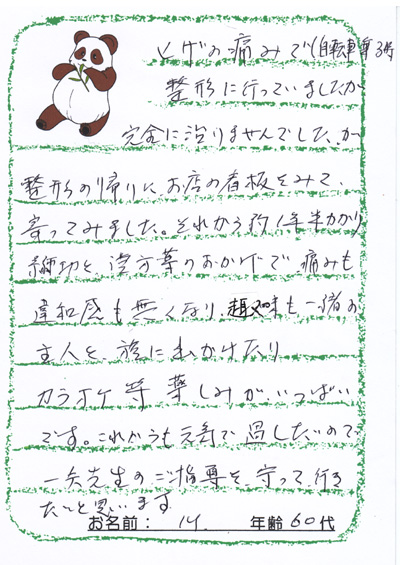 ヒザの痛みで(自転車事
整形に行っていましたが
完全に治りませんでした、が
整形の帰りに、お店の看板をみて、
寄ってみました。それから約1年半かかり
漢方薬のおかげで痛みも
違和感も無くなり、趣味も一緒の
主人と、旅に出かけたり
カラオケ等楽しみが、いっぱい
です。これからも元気で過したいので、
先生のご指導を、守って、行き
たいと思います
お名前: 年齢60代